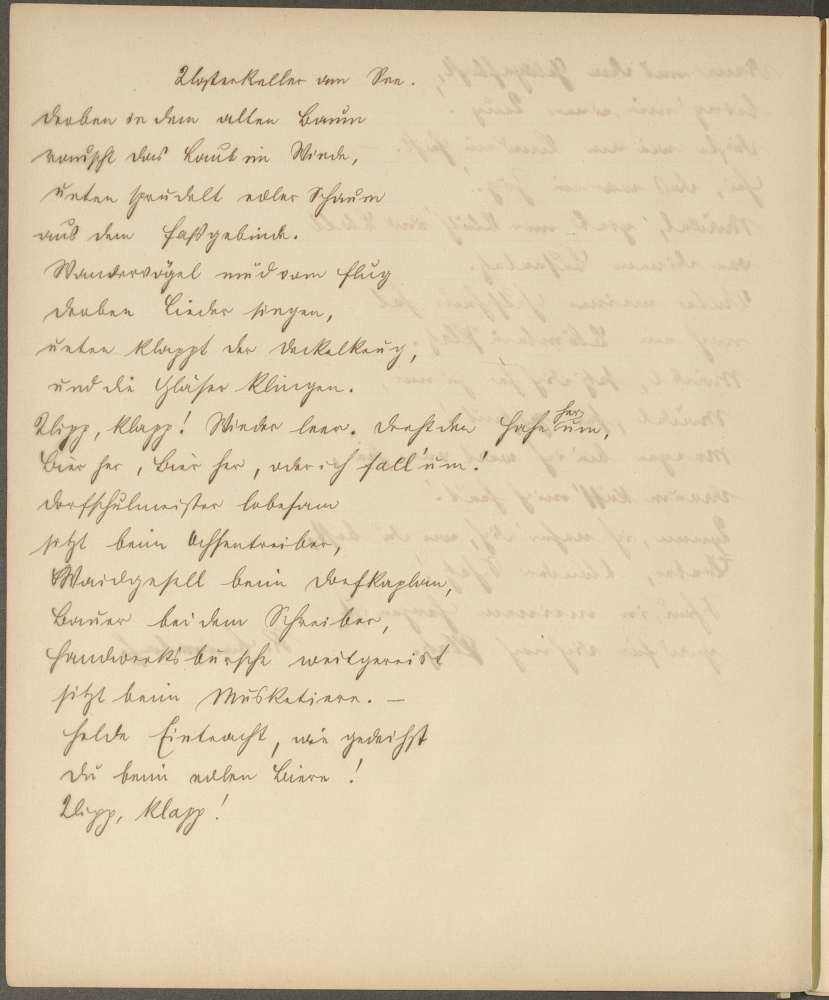 Klosterkeller am See.
Droben in dem alten Baum
rauscht das Laub im Winde,
unten sprudelt edler Schaum
aus dem Faßgebinde.
Wandervögel müd vom Flug
droben Lieder singen,
unten klappt der Deckelkrug,
und die Gläser klingen.
Klipp, klapp! Wieder leer. Dreht den Hahn herum,
Bier her, Bier her, oder ich fall' um!
Dorfschulmeister lobesam
sitzt beim Ochsentreiber,
Waidgesell beim Dorfkaplan,
Bauer bei dem Schreiber,
Handwerksbursche weitgereist
sitzt beim Musketiere. –
Holde Eintracht, wie gedeihst
du beim edlen Biere!
Klipp, klapp!